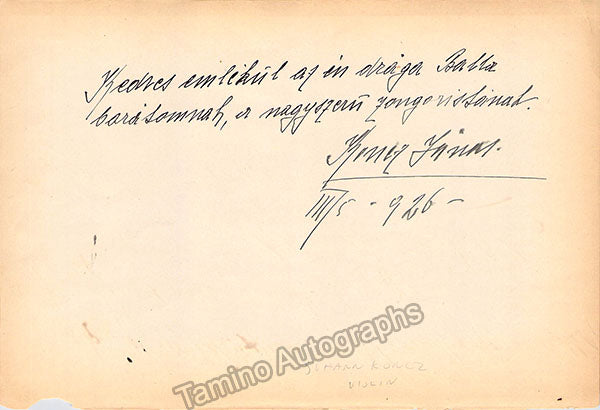 Kedves emlékül az én drága Balla
barátomnak, a nagyszerű zongoristának.
Koncz János.
III/5 - 926 -
Tamino Autographs
JOHANN KONCZ
VIOLIN